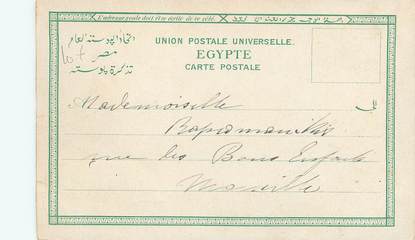 L'adresse seule doit être écrite de ce côté.
UNION POSTALE UNIVERSELLE.
EGYPTE
CARTE POSTALE
اتحاد البوسته العام
مصر
تذكرة بوسته
Mademoiselle
rue des Bons Enfants
Marseille